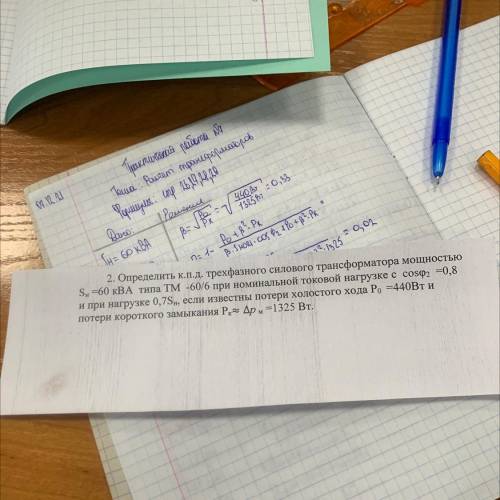 Практический работа №
07.12.21
Тема: Расчёт трансформаторов
Формулы стр 26,27,28,29
Дано:
Решение
β=√P₀/Pк=√440Вт/1325Вт=0,33
Sн=60 кВА
P₀+β²·Pк
=0,02
2. Определить к.п.д. трехфазного силового трансформатора мощностью
Sн =60 кВА типа ТМ -60/6 при номинальной токовой нагрузке с cosφ₂ =0,8
и при нагрузке 0,7Sн, если известны потери холостого хода P₀ =440Вт и
потери короткого замыкания Pк≈ Δp м =1325 Вт.